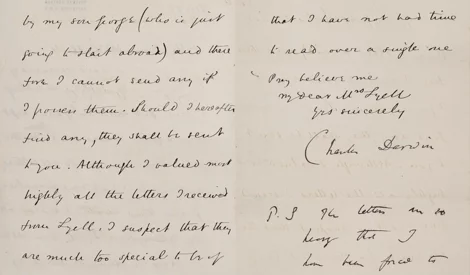 by my son George (who is just
going to start abroad) and there
fore I cannot send any if
I possess them. Should I hereafter
find any, they shall be sent
to you. Although I valued most
highly all the letters I received
from Lyell, I suspect that they
are much too special to be of
that I have not had time
to read over a single one
Pray believe me
My dear Mrs Lyell
Yrs sincerely
Charles Darwin
P.S The letters are so
heavy that I
have been forced to